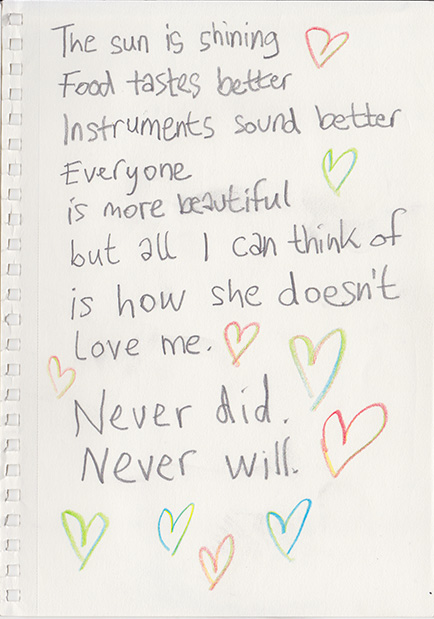 The sun is shining
Food tastes better
Instruments sound better
Everyone
is more beautiful
but all I can think of
is how she doesn't
love me.
Never did.
Never will.